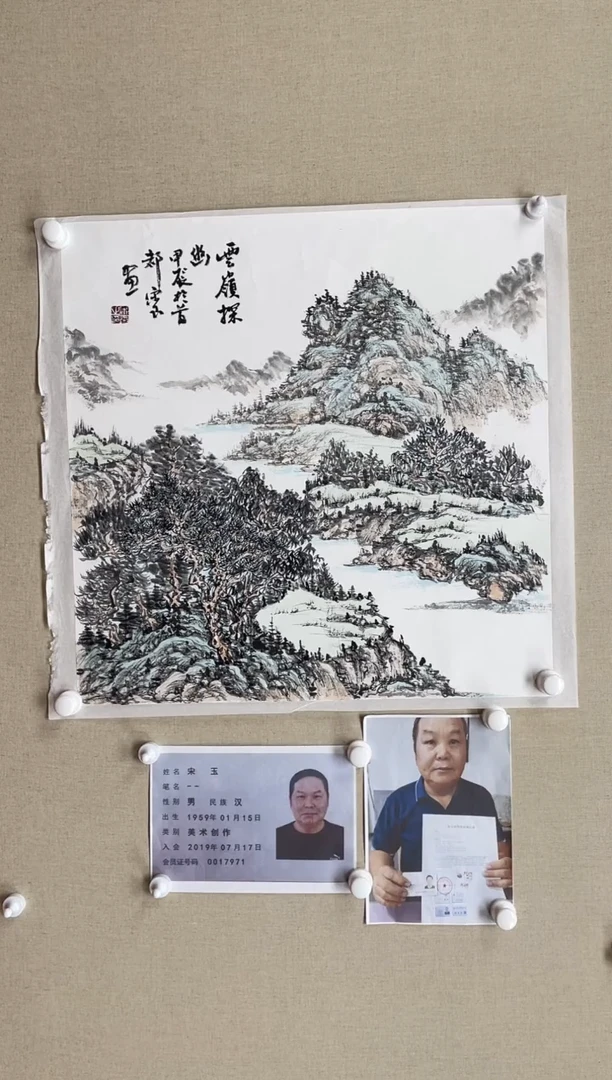 雲嶺探
幽
甲辰於首
都宋玉
畫
姓名 宋 玉
笔名 --
性别 男 民族 汉
出生 1959年01月15日
类别 美术创作
入会 2019年07月17日
会员证号码 0017971